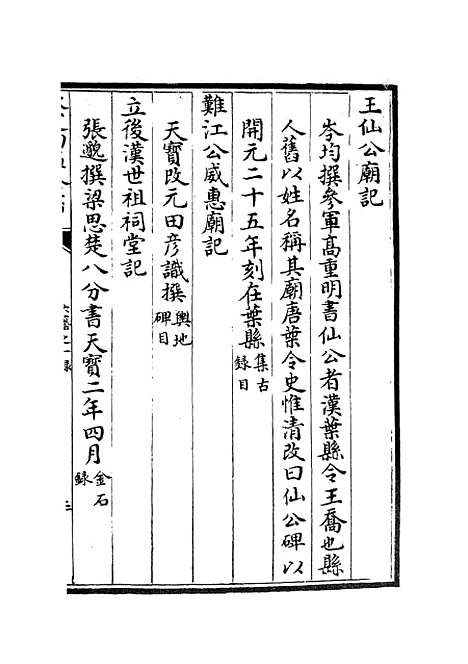 王仙公廟記
岑均撰參軍髙重明書仙公者漢葉縣令王喬也縣
人舊以姓名稱其廟唐葉令史惟清改曰仙公碑以
開元二十五年刻在葉縣集古錄目
難江公威惠廟記
天寶改元田彦識撰輿地碑目
立後漢世祖祠堂記
張邈撰梁思楚八分書天寶二年四月金石録